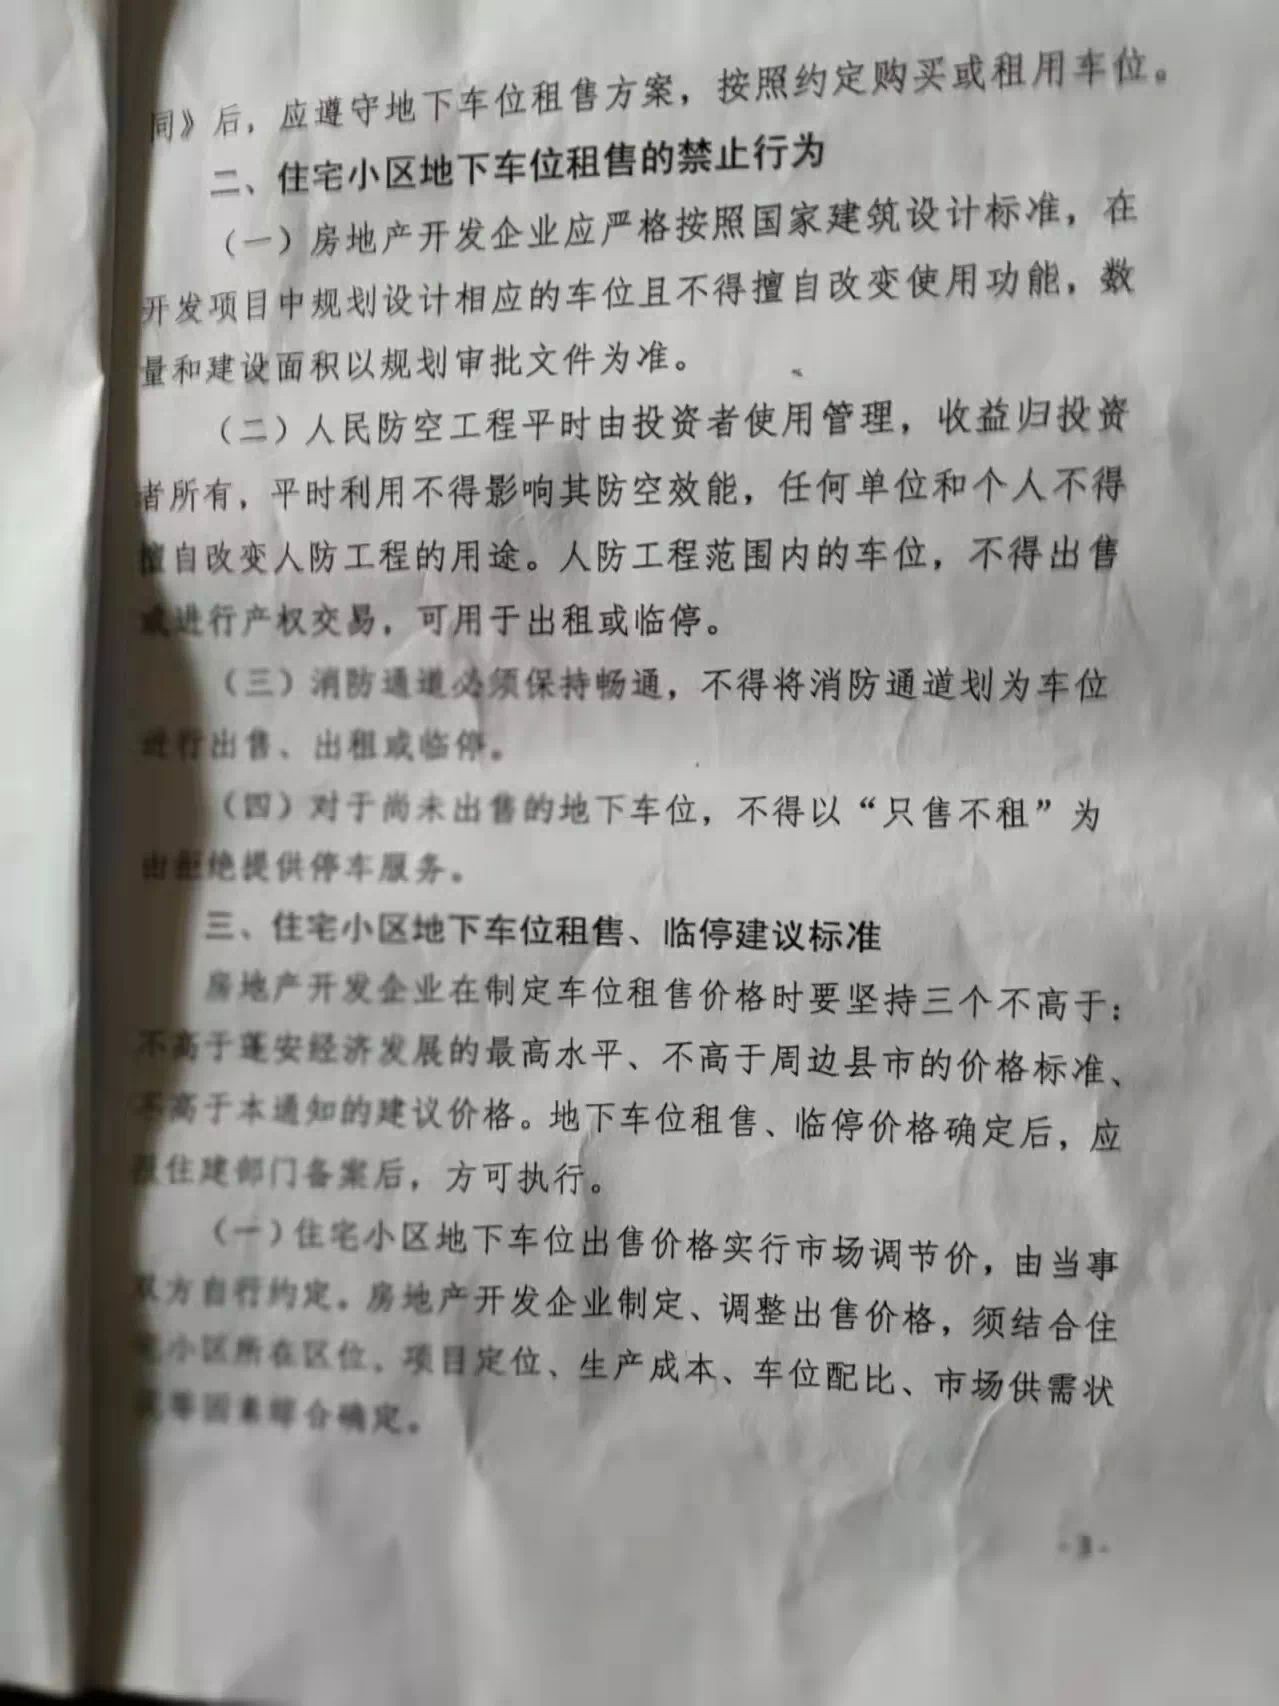 同》后，应遵守地下车位租售方案，按照约定购买或租用车位。
二、住宅小区地下车位租售的禁止行为
（一）房地产开发企业应严格按照国家建筑设计标准，在
开发项目中规划设计相应的车位且不得擅自改变使用功能，数
量和建设面积以规划审批文件为准。
（二）人民防空工程平时由投资者使用管理，收益归投资
者所有，平时利用不得影响其防空效能，任何单位和个人不得
擅自改变人防工程的用途。人防工程范围内的车位，不得出售
或进行产权交易，可用于出租或临停。
（三）消防通道必须保持畅通，不得将消防通道划为车位
进行出售、出租或临停。
（四）对于尚未出售的地下车位，不得以“只售不租”为
由拒绝提供停车服务。
三、住宅小区地下车位租售、临停建议标准
房地产开发企业在制定车位租售价格时要坚持三个不高于：
不高于蓬安经济发展的最高水平、不高于周边县市的价格标准、
不高于本通知的建议价格。地下车位租售、临停价格确定后，应
报住建部门备案后，方可执行。
（一）住宅小区地下车位出售价格实行市场调节价，由当事
双方自行约定。房地产开发企业制定、调整出售价格，须结合住
宅小区所在区位、项目定位、生产成本、车位配比、市场供需状
况等因素综合确定。
- 3 -